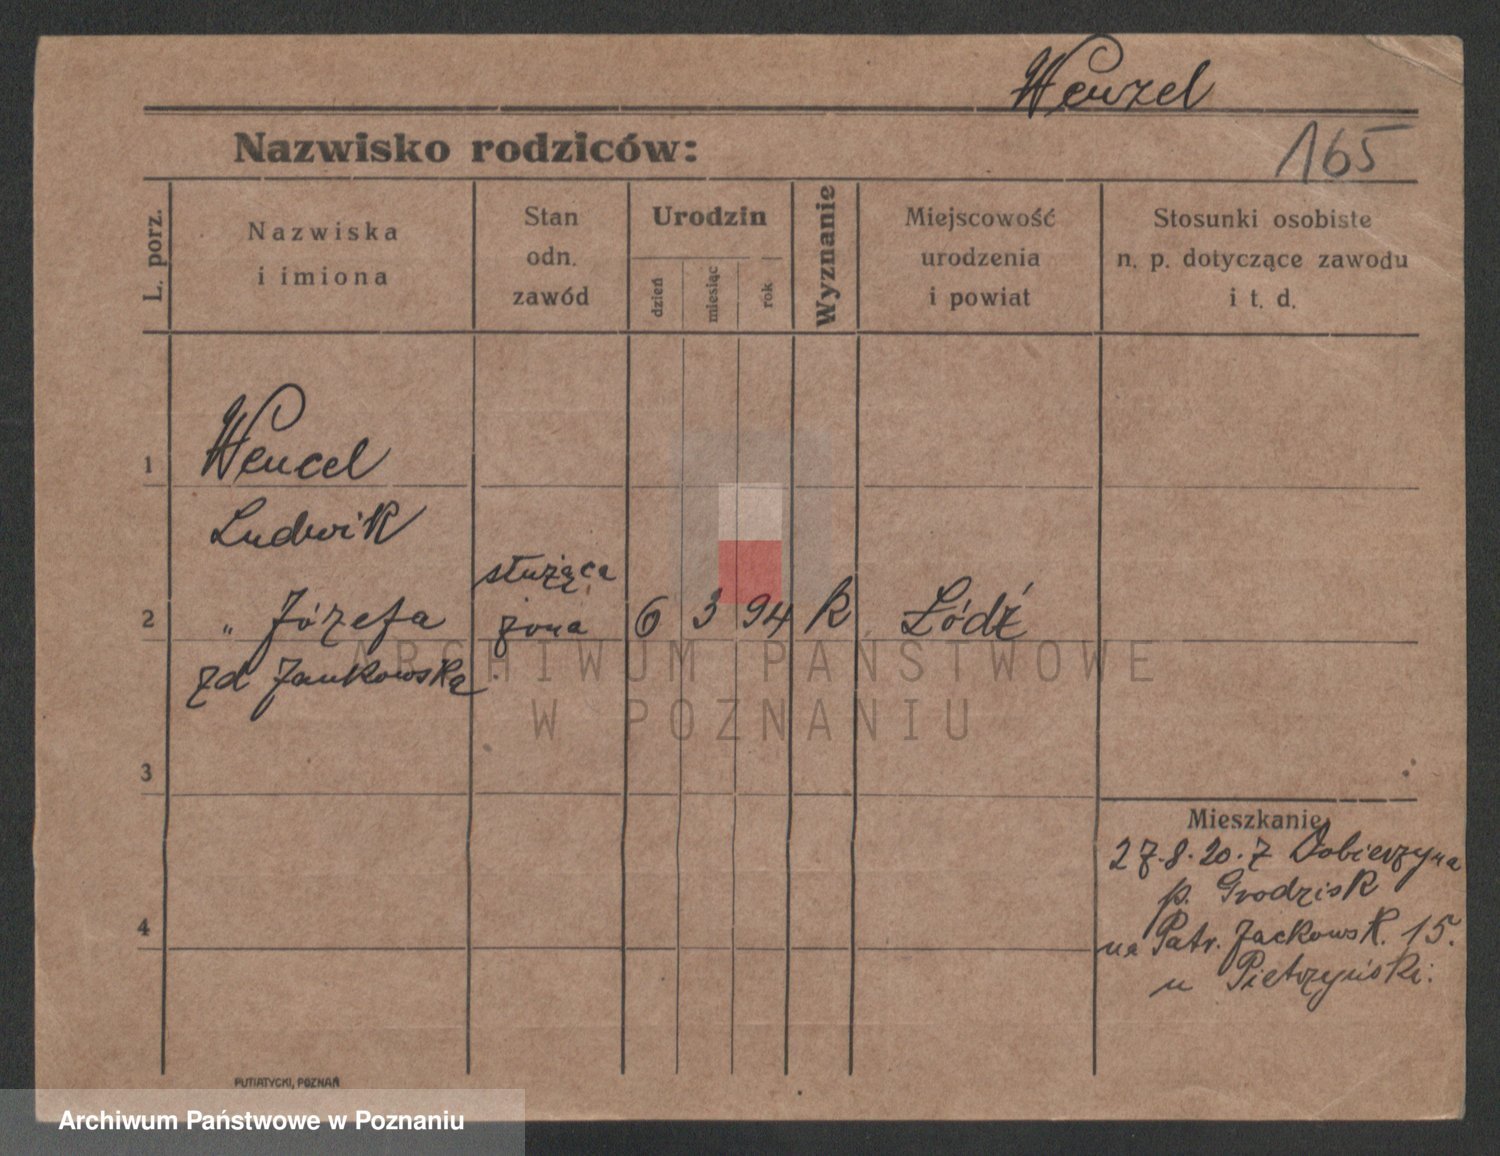 Wenzel
165
Nazwisko rodziców:
L. porz.
Nazwiska
i imiona
Stan
odn.
zawód
Urodzin
dzień
miesiąc
rok
Wyznanie
Miejscowość
urodzenia
i powiat
Stosunki osobiste
n. p. dotyczące zawodu
i t. d.
1
Wencel
Ludwik
2
" Józefa
służąca
żona
6 3 94 R Łódź
zd Jankowska
3
4
Mieszkanie
27.8.20. z Dobieżyna
p. Grodzisk
na Patr. Jackowsk. 15.
u Pietrzyński.
PUTIATYCKI, POZNAŃ
ARCHIWUM PAŃSTWOWE
W POZNANIU
Archiwum Państwowe w Poznaniu